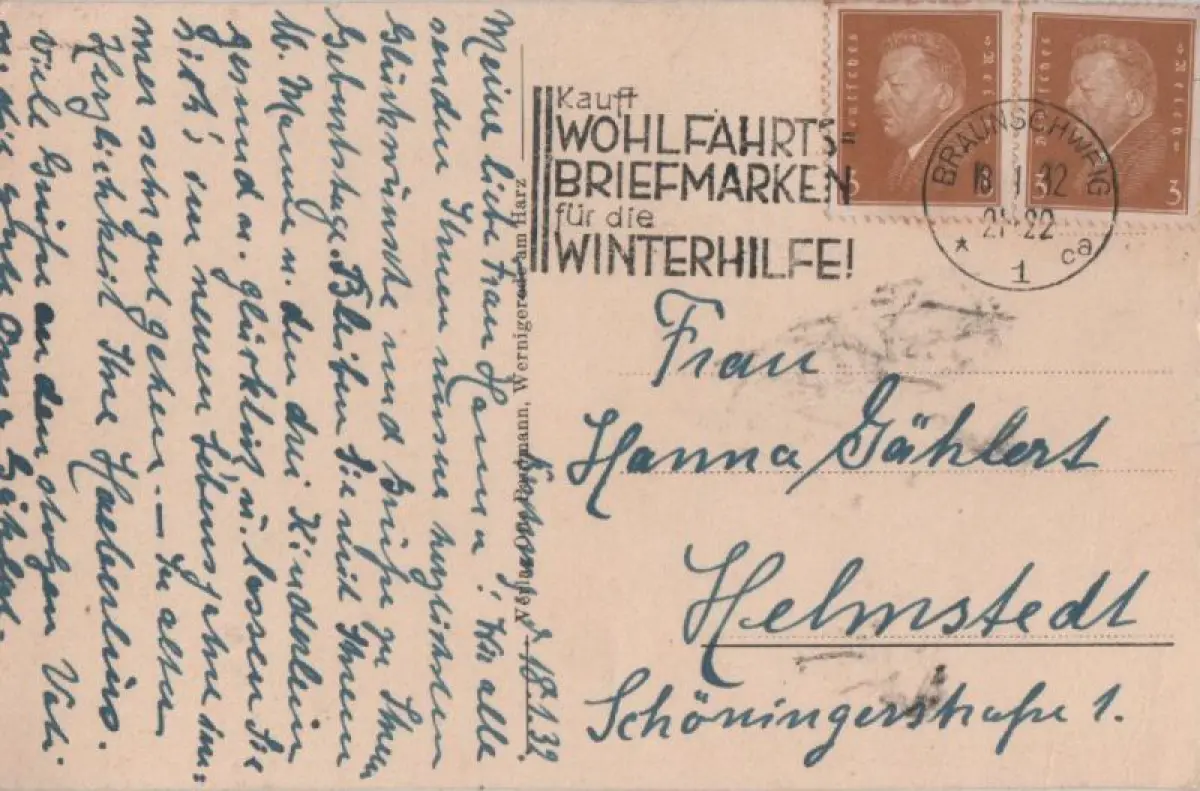 Kauft
WOHLFAHRTS-
BRIEFMARKEN
für die
WINTERHILFE!
Deutsches Reich
3
Deutsches Reich
3 3
BRAUNSCHWEIG
18 1 32
21-22
* 1 ca
Frau
Hanna Gählert
Helmstedt
Schöningerstraße 1.
Wernigerode am Harz
d. 18.1.32.
Meine liebe Frau Hanna! Wir alle
senden Ihnen unsere herzlichsten
Glückwünsche und Grüße zu Ihrem
Geburtstage. Bleiben Sie mit Ihrem
lb. Manne u. den drei Kinderlein
gesund u. glücklich u. lassen Sie
sich's im neuen Lebensjahre im=
mer sehr gut gehen. — In alter
Herzlichkeit Ihre Haeberlins.
Viele Grüße an den stolzen Vati
die gute Oma Gählert.